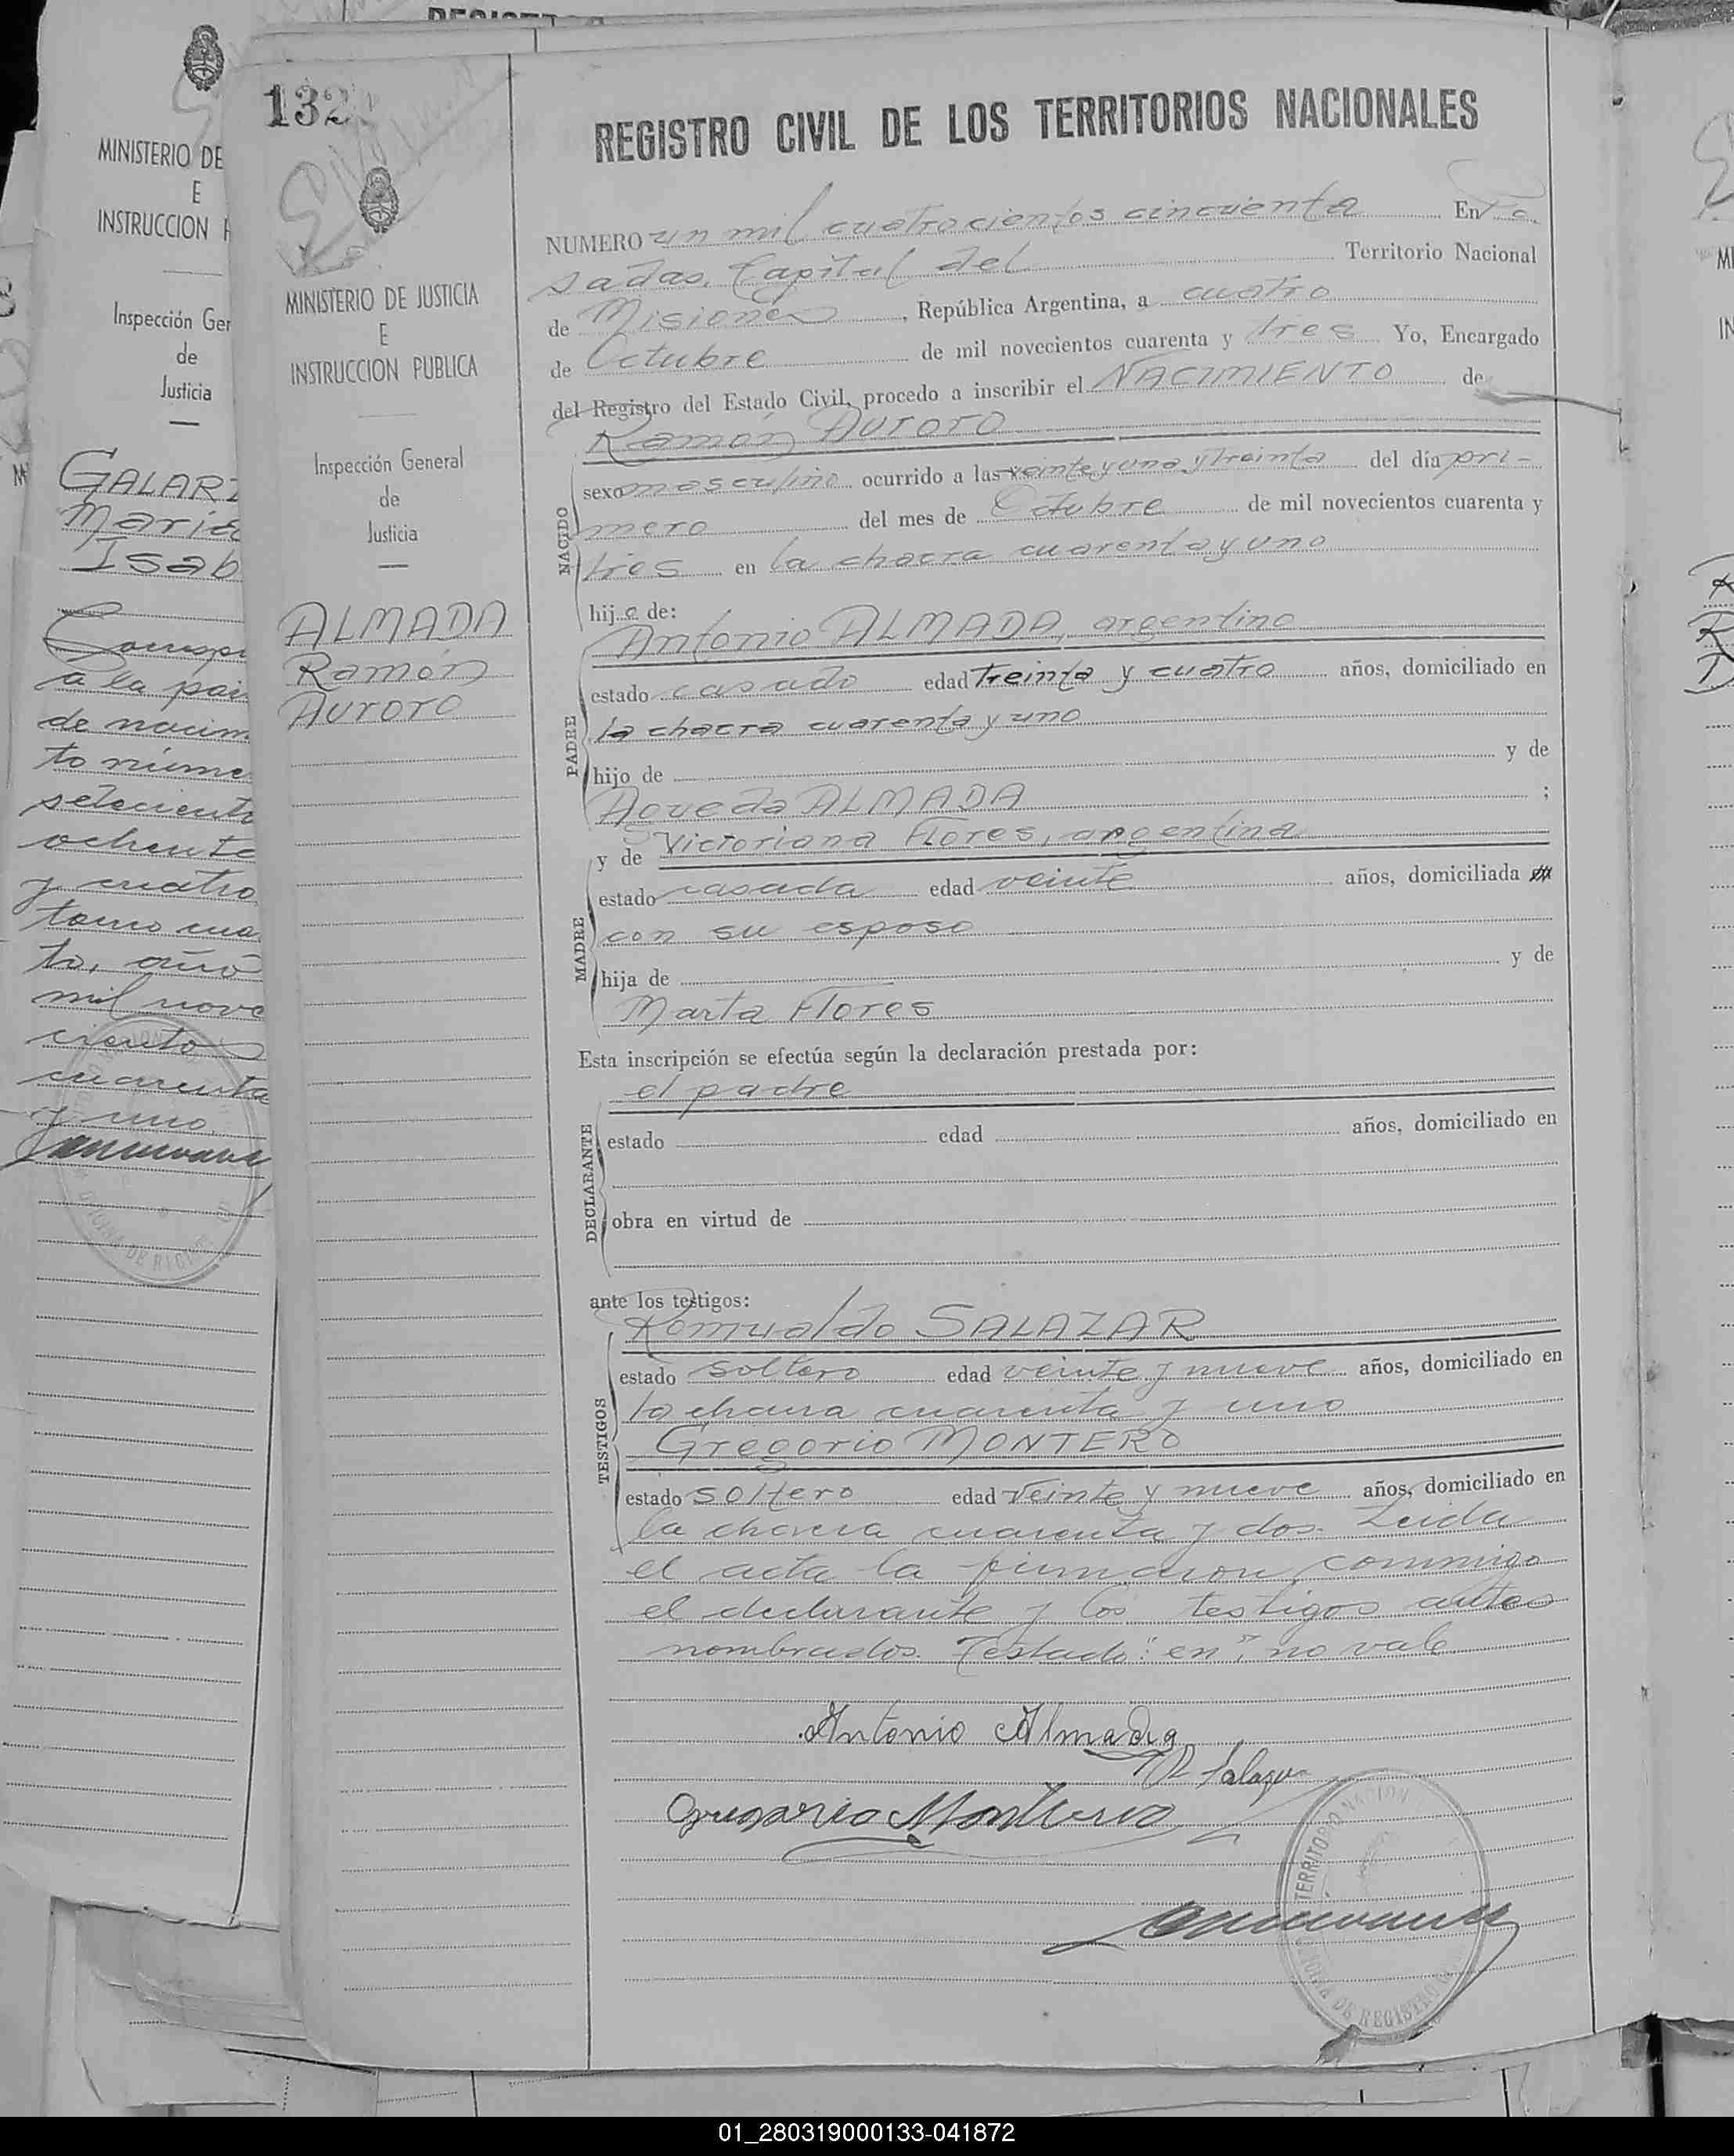 REGISTRO
MINISTERIO DE
E
INSTRUCCION
Inspección Ger
de
Justicia
GALAR
Maria
Isab
Corresp
a la par
de nacim
to núme
seteciento
ochenta
y cuatro
tomo cua
to, año
mil nove
ciento
cuarenta
y uno.
132
MINISTERIO DE JUSTICIA
E
INSTRUCCION PUBLICA
Inspección General
de
Justicia
ALMADA
Ramón
Auroro
REGISTRO CIVIL DE LOS TERRITORIOS NACIONALES
NUMERO un mil cuatrocientos cincuenta En Po
sadas, Capital del Territorio Nacional
de Misiones, República Argentina, a cuatro
de Octubre de mil novecientos cuarenta y tres Yo, Encargado
del Registro del Estado Civil, procedo a inscribir el NACIMIENTO de
Ramon Auroro
NACIDO
sexo masculino ocurrido a las veinte y una y treinta del día pri-
mero del mes de Octubre de mil novecientos cuarenta y
tres en la chacra cuarenta y uno
hij o de:
PADRE
Antonio ALMADA, argentino
estado casado edad Treinta y cuatro años, domiciliado en
la chacra cuarenta y uno
hijo de y de
Agueda ALMADA ;
MADRE
y de Victoriana Flores, argentina
estado casada edad veinte años, domiciliada
con su esposo
hija de y de
Marta Flores
Esta inscripción se efectúa según la declaración prestada por:
el padre
DECLARANTE
estado edad años, domiciliado en
obra en virtud de
ante los testigos:
TESTIGOS
Romualdo SALAZAR
estado soltero edad veinte y nueve años, domiciliado en
la chacra cuarenta y uno
Gregorio MONTERO
estado soltero edad veinte y nueve años, domiciliado en
la chacra cuarenta y dos. Leida
el acta la firmaron conmigo
el declarante y los testigos antes
nombrados. Testado: "en", no vale
Antonio Almada
R Salazar
Gregorio Montero
TERRITORIO NACION
DE REGISTRO
01_280319000133-041872